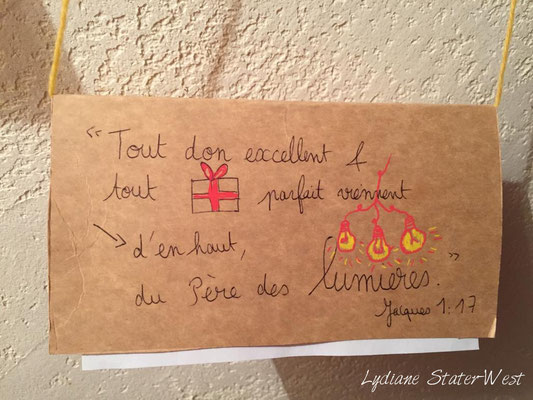 “Tout don excellent &
tout parfait viennent
d'en haut,
du Père des lumières.”
Jacques 1:17
Lydiane Stater-West